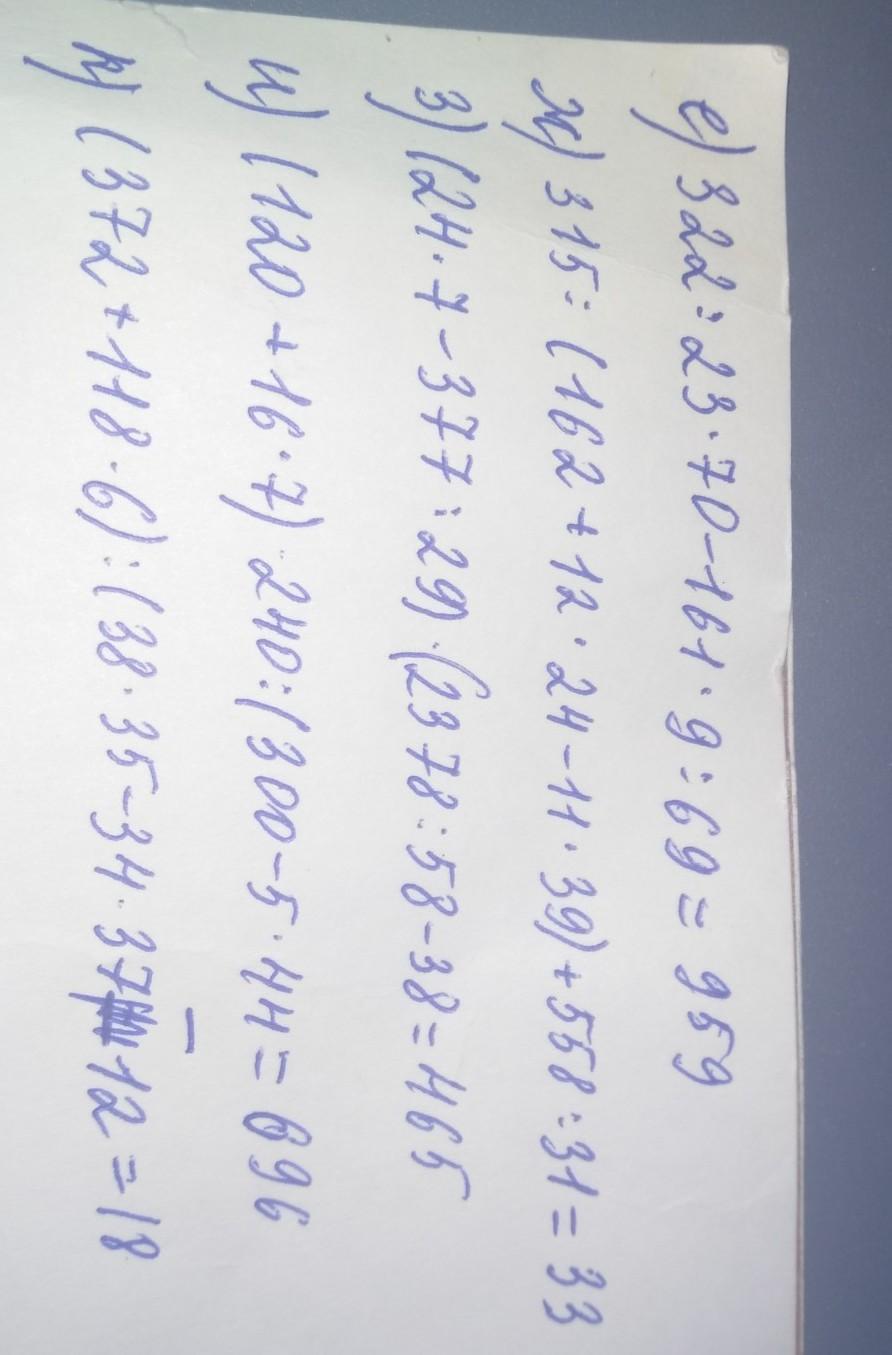 е) 322:23·70-161·9:69=959
ж) 315:(162+12·24-11·39)+558:31=33
з) (24·7-377:29)·(2378:58-38=465
и) (120+16·7)·240:(300-5·44=696
к) (372+118·6):(38·35-34·37-12=18